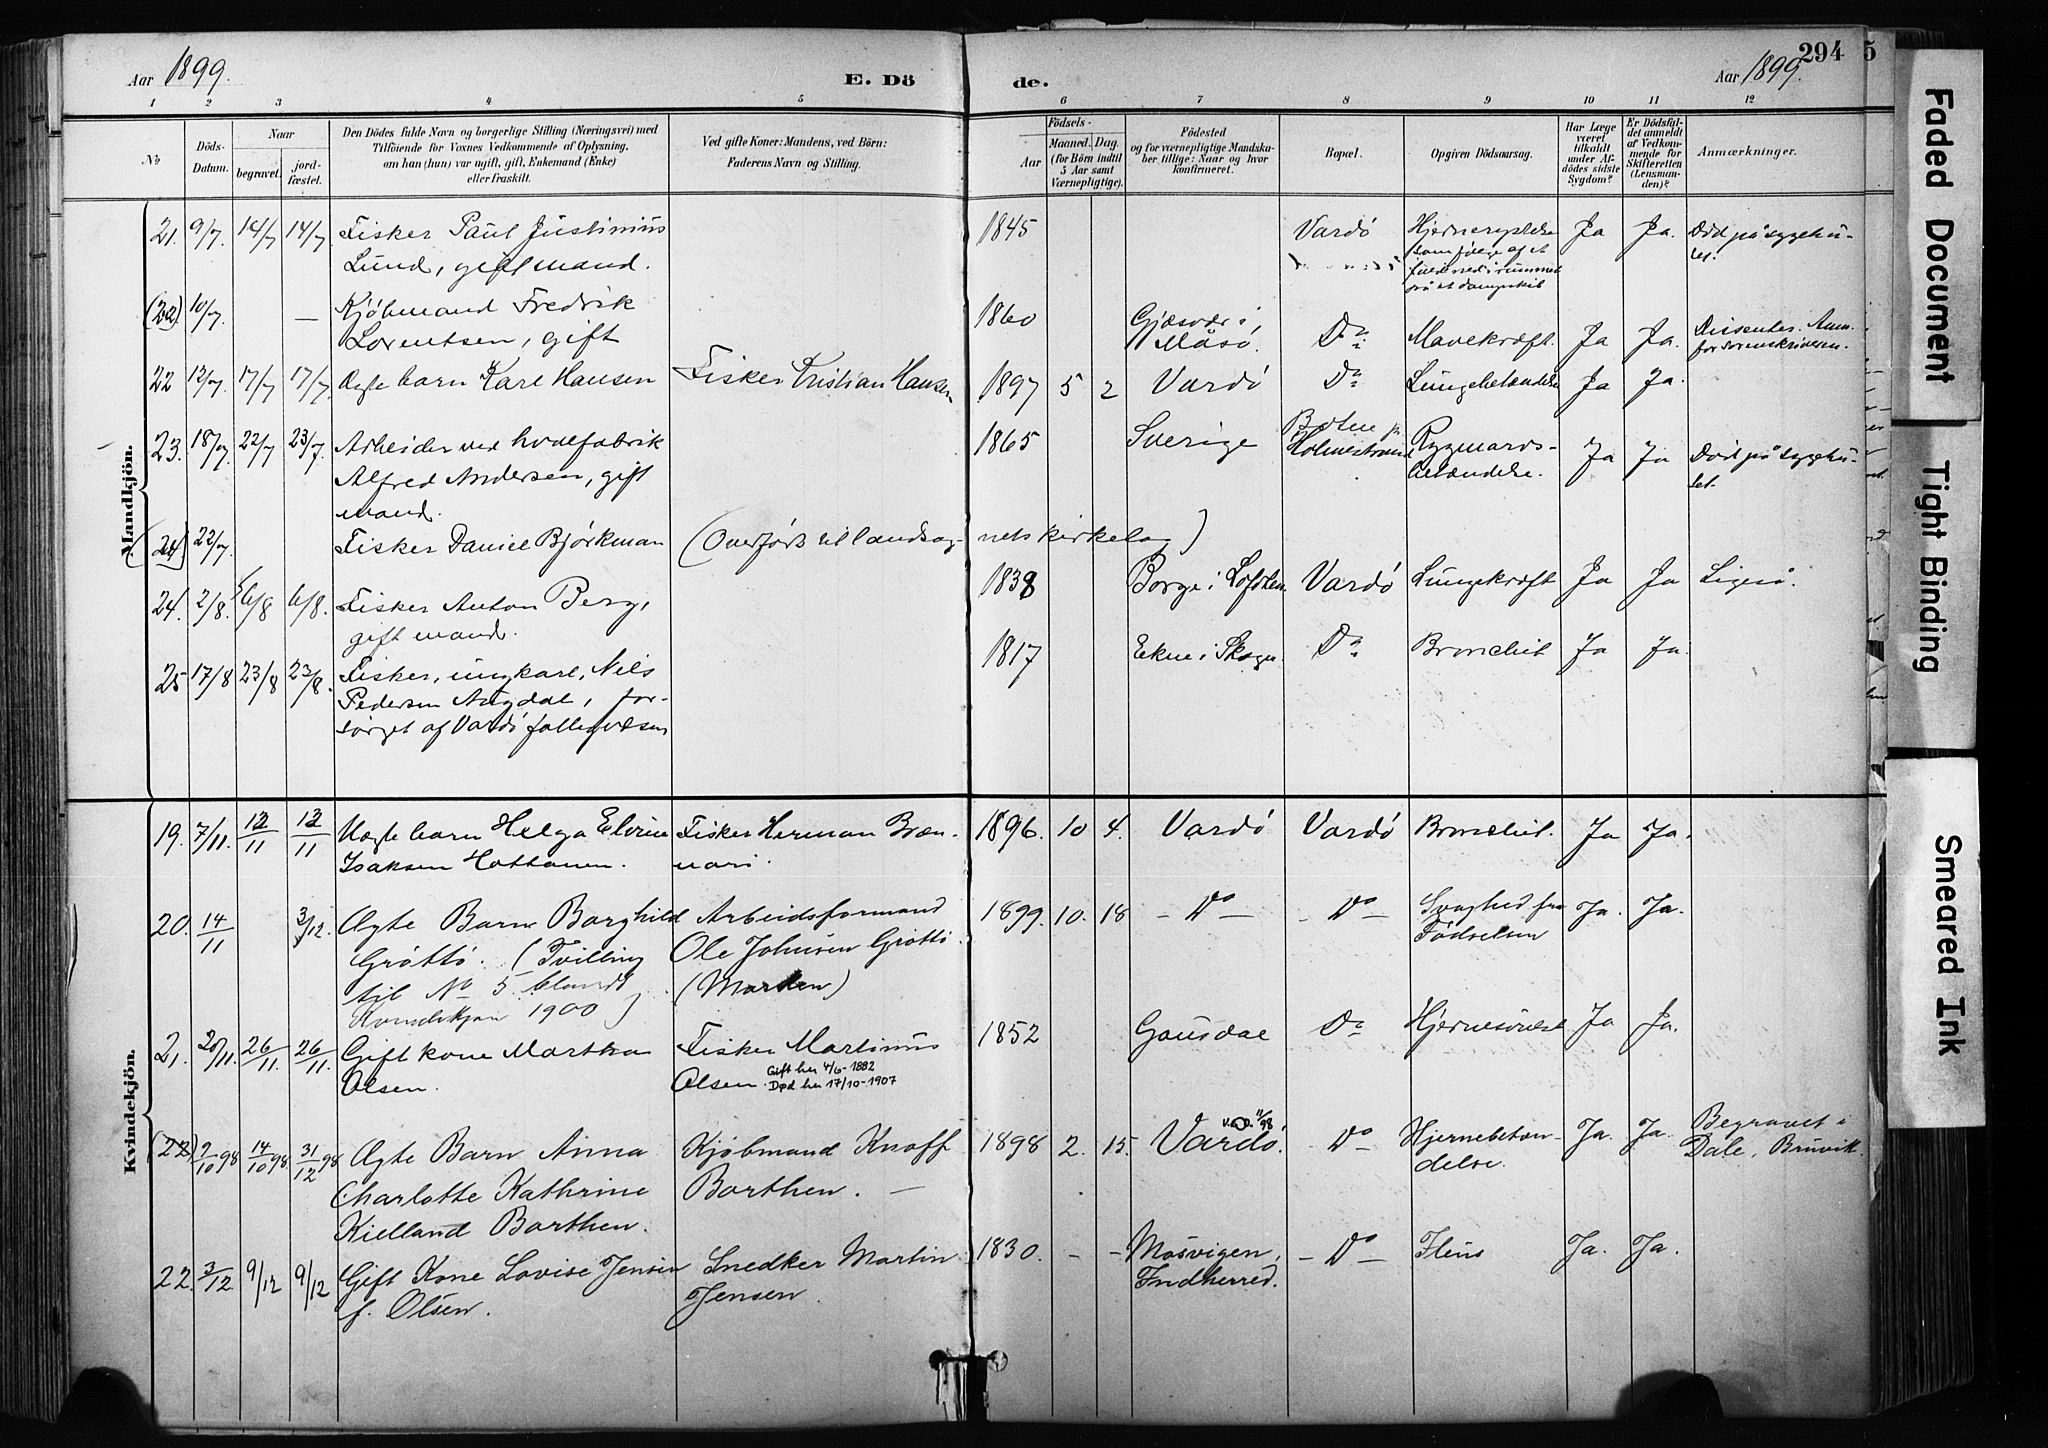 Aar 1899.
E. Dö
de.
Aar 1899.
294
5
1 2 3 4 5 6 7 8 9 10 11 12
No
Döds-Datum.
Naar
begravet.
jord-fæstet.
Den Dödes fulde Navn og borgerlige Stilling (Næringsvei) med
Tilföiende for Voxnes Vedkommende af Oplysning,
om han (hun) var ugift, gift, Enkemand (Enke)
eller fraskilt.
Ved gifte Koner: Mandens, ved Börn:
Faderens Navn og Stilling.
Födsels-
Aar
Maaned. Dag.
(for Börn indtil
5 Aar samt
Værnepligtige).
Födested
og for værnepligtige Mandska-
ber tillige: Naar og hvor
konfirmeret.
Bopæl.
Opgiven Dödsaarsag.
Har Læge
været
tilkaldt
under Af-
dödes sidste
Sygdom?
Er Dödsfal-
det anmeldt
af Vedkom-
mende for
Skifteretten
(Lensman-
den)?
Anmærkninger.
Mandkjön.
21. 9/7. 14/7 14/7 Fisker Paul Justinius
Lund, gift mand.
1845 Vardö Ja Ja. Död på sygehu-
set.
(22) 10/7. — Kjöbmand Fredrik
Lorentsen, gift
1860 Gjæsvær i
Måsö. Do Mavekræft. Ja Ja. Dissenter. Anm.
for sorenskriveren.
22 13/7. 17/7 17/7. Ægte barn Karl Hansen Fisker Kristian Hansen
1897 5 2 Vardö Do Lungebetændelse Ja Ja.
23. 18/7. 22/7 23/7. Arbeider ved hvalfabrik
Alfred Andersen, gift
mand.
1865 Sverige Holmestrand Rygmarvs-
betændelse. Ja Ja Död på sygehu-
set.
(24) 22/7. Fisker Daniel Björkman (Overförts til landsog-
nets kirkebog)
24. 2/8. 6/8 6/8. Fisker Anton Berg,
gift mand.
1838 Borge i Lofoten Vardö Lungekræft Ja Ja Ligesö.
25 17/8 23/8 23/8. Fisker, ungkarl, Nils
Pedersen Augdal, for-
sörget af Vardö fattigvæsen
1817 Ekne i Skogn. Do Bronchit Ja Ja.
Kvindekjön.
19. 7/11. 12/11 12/11 Uægte barn Helga Elvine
Isaksen Hottanen.
Fisker Herman Bræn-
nari.
1896. 10 4. Vardö Vardö Bronchit. Ja Ja.
20. 14/11 3/12. Ægte Barn Borghild
Gröttö. (Tvilling
til No 5 blandt
Kvindekjön 1900)
Arbeidsformand
Ole Johnsen Gröttö.
(Morten)
1899. 10. 18 — Do — — Do — Svaghed fra
Födselsen Ja. Ja.
21. 20/11. 26/11. 26/11. Gift kone Martha
Olsen.
Fisker Martinus
Olsen. Gift her 4/6-1882
Død her 17/10-1907
1852 Gausdal Do Ja Ja.
(22) 9/10 98 14/10 98. 31/12 98 Ægte Barn Anna
Charlotte Kathrine
Kielland Barthen.
Kjöbmand Knoff
Barthen. —
1898 2. 15. Vardö. Do Hjernebetæn-
delse. Ja. Ja. Begravet i
Dale, Brüvik.
22. 3/12. 9/12 9/12 Gift Kone Lovise Jensen
f. Olsen.
Snedker Martin
Jensen.
1830. - - Mosvigen,
Indherred. — Do — Flüs Ja. Ja.
Faded Document
Tight Binding
Smeared Ink